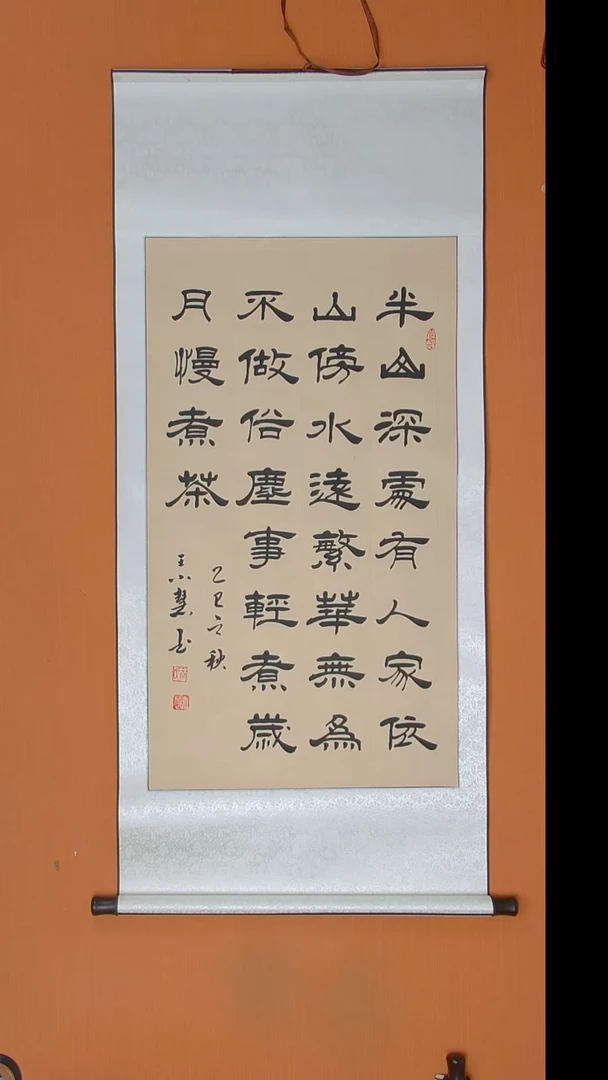 半山深處有人家依
山傍水遠繁華無為
不做俗塵事輕煮歲
月慢煮茶
乙巳之秋
王小慧书